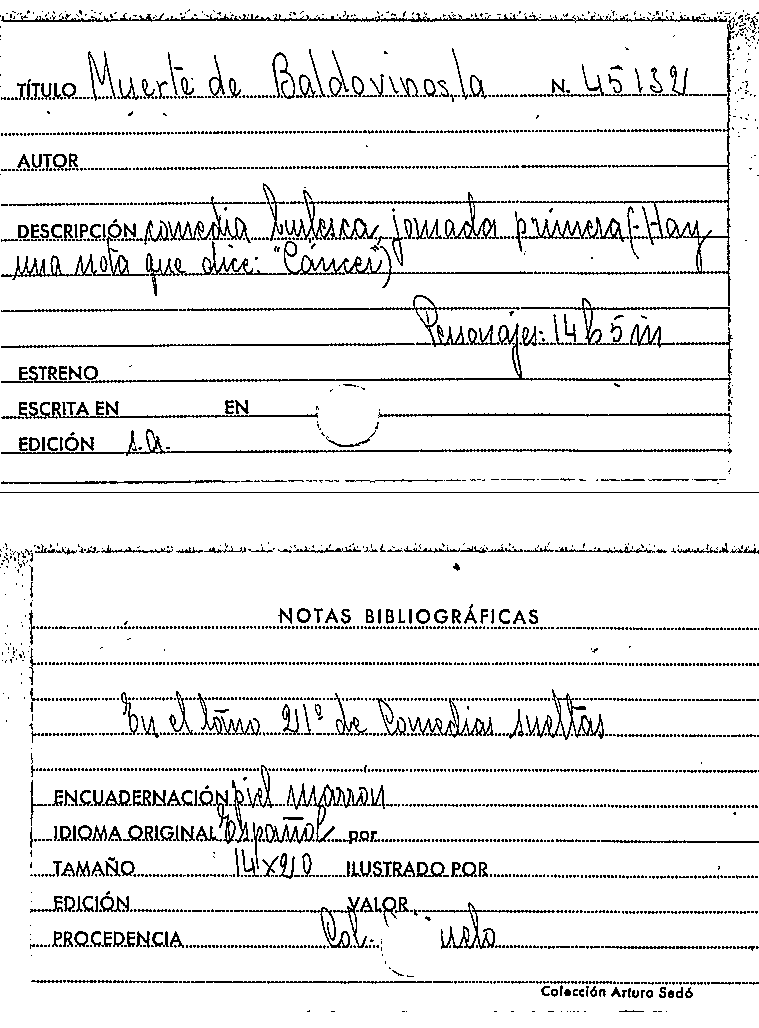 TÍTULO Muerte de Baldovinos, la N. 45132
AUTOR
DESCRIPCIÓN comedia burlesca, jornada primera (-Hay
una nota que dice: "Cáncer")
Personajes: 14 h 5 m
ESTRENO
ESCRITA EN EN
EDICIÓN s.a.
NOTAS BIBLIOGRÁFICAS
En el tomo 21º de Comedias sueltas
ENCUADERNACIÓN piel marrón
IDIOMA ORIGINAL Español por
TAMAÑO 14x20 ILUSTRADO POR
EDICIÓN VALOR
PROCEDENCIA Col.
Colección Arturo Sedó